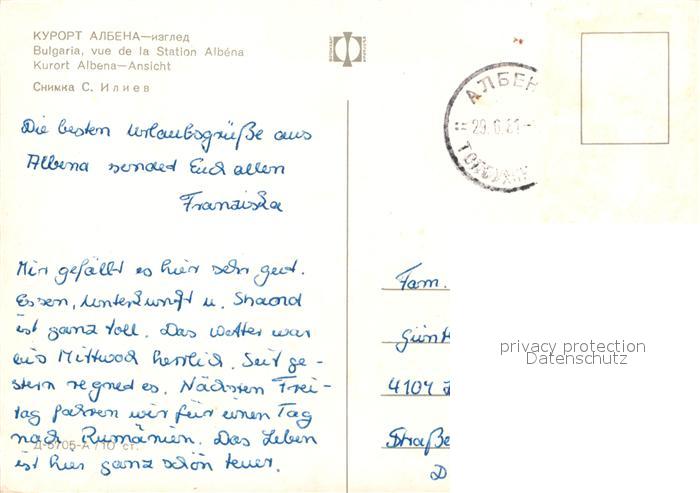 КУРОРТ АЛБЕНА—изглед
Bulgaria, vue de la Station Albéna
Kurort Albena—Ansicht
Снимка С. Илиев
Die besten Urlaubsgrüße aus
Albena sendet Euch allen
Franziska
Mir gefällt es hier sehr gut.
Essen, Unterkunft u. Strand
ist ganz toll. Das Wetter war
bis Mittwoch herrlich. Seit ge-
stern regned es. Nächsten Frei-
tag fahren wir für einen Tag
nach Rumänien. Das Leben
ist hier ganz schön teuer.
Д-5705-А / 10 ст.
АЛБЕН
29.6.81
Fam.
Günth
4107
Straße
D
privacy protection
Datenschutz